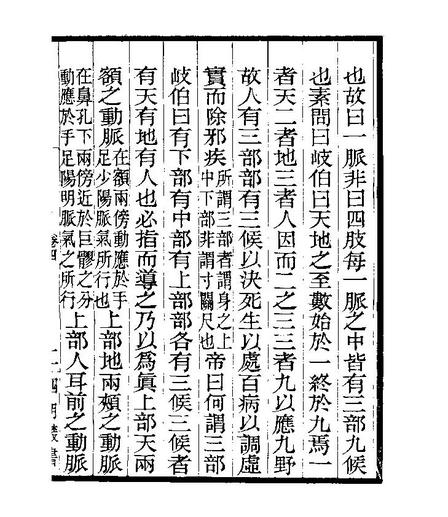 也故曰一脈非曰四肢每一脈之中皆有三部九候
也素問曰岐伯曰天地之至數始於一終於九焉一
者天二者地三者人因而二之三三者九以應九野
故人有三部部有三候以決死生以處百病以調虛
實而除邪疾
所謂三部者謂身之上
中下部非謂寸關尺也
帝曰何謂三部
岐伯曰有下部有中部有上部部各有三候三候者
有天有地有人也必指而導之乃以為眞上部天兩
額之動脈
在額兩傍動應於手
足少陽脈氣所行也
上部地兩頰之動脈
在鼻孔下兩傍近於巨髎之分
動應於手足陽明脈氣之所行
上部人耳前之動脈
卷四